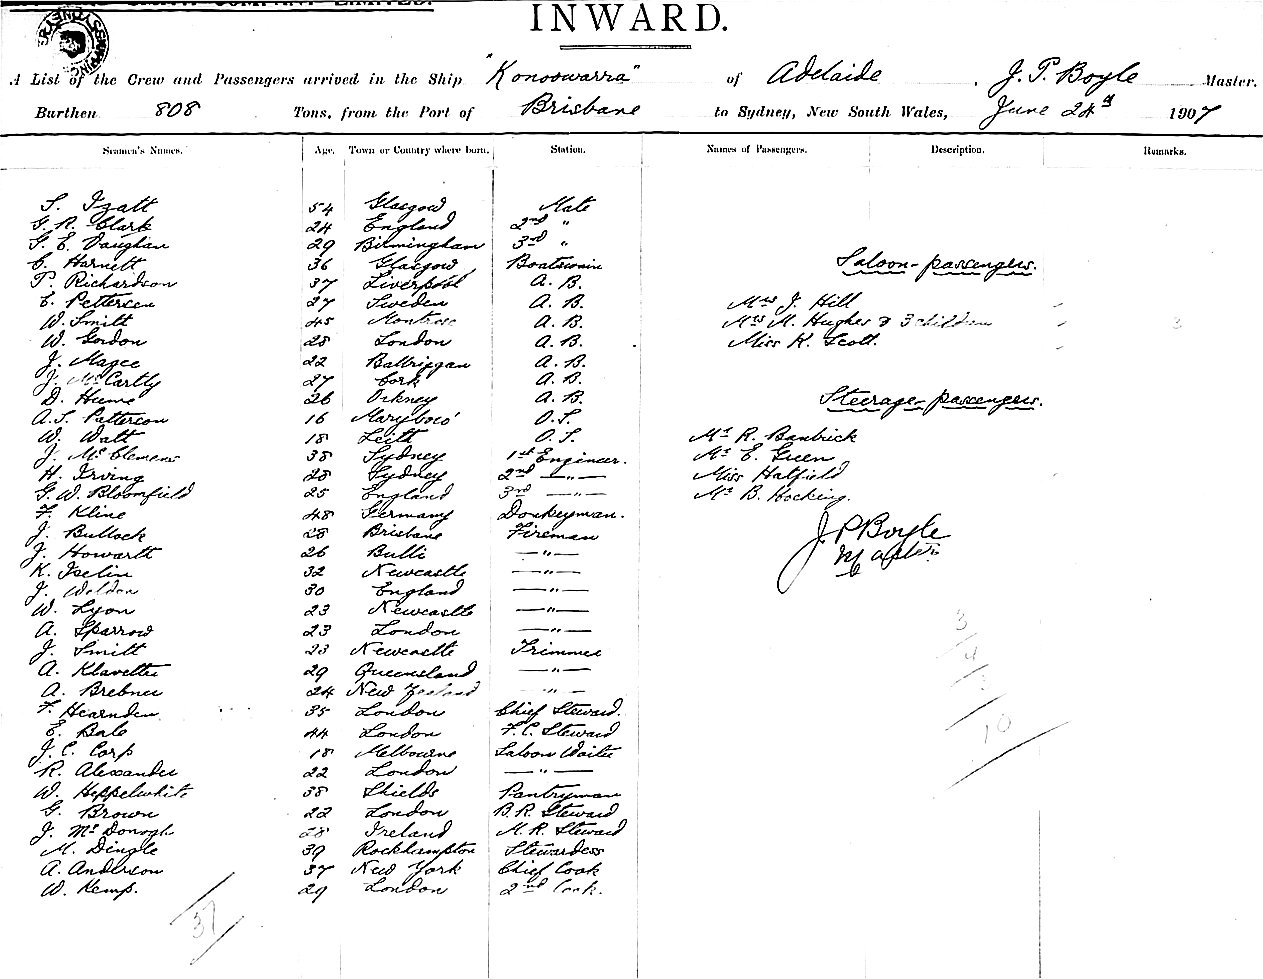 INWARD.
A List of the Crew and Passengers arrived in the Ship "Konoowarra" of Adelaide, J. P. Boyle Master.
Burthen 808 Tons, from the Port of Brisbane to Sydney, New South Wales, June 24th 1907
Seamen's Names. Age. Town or Country where born. Station. Names of Passengers. Description. Remarks.
S. Izatt 54 Glasgow Mate
G. R. Clark 24 England 2nd "
G. E. Vaughan 29 Birmingham 3rd "
C. Harnett 36 Glasgow Boatswain
Saloon-passengers.
P. Richardson 37 Liverpool A. B.
E. Petterson 27 Sweden A. B. Mrs J. Hill
W. Smith 45 Montrose A. B. Mrs M. Hughes & 3 children 3
W. Gordon 28 London A. B. Miss K. Scott.
J. Magee 22 Balbriggan A. B.
J. McCartly 27 Cork A. B.
D. Hume 26 Orkney A. B.
Steerage-passengers.
A. S. Patterson 16 Maryboro' O. S.
W. Watt 18 Leith O. S. Mr R. Banbrick
J. McClemens 38 Sydney 1st Engineer. Mr E. Green
H. Irving 28 Sydney 2nd —"— Miss Hatfield
G. W. Bloomfield 25 England 3rd —"— Mr B. Hocking.
F. Kline 48 Germany Donkeyman.
J. Bullock 28 Brisbane Fireman
J P Boyle
Master
J. Howarth 26 Bulli —"—
K. Iselin 32 Newcastle —"—
J. Weldon 30 England —"—
W. Lyon 23 Newcastle —"—
A. Sparrow 23 London —"—
3
J. Smith 23 Newcastle Trimmer
4
A. Klavetter 29 Queensland —"—
A. Brebner 24 New Zealand —"—
F. Hearnden 35 London Chief Steward.
10
E. Bale 44 London F. C. Steward
J. C. Corp 18 Melbourne Saloon Waiter
R. Alexander 22 London —"—
W. Heppelwhite 38 Shields Pantryman
G. Brown 22 London B. R. Steward
J. McDonogh 28 Ireland M. R. Steward
M. Dingle 39 Rockhampton Stewardess
A. Anderson 37 New York Chief Cook
W. Kemp. 29 London 2nd Cook.
37